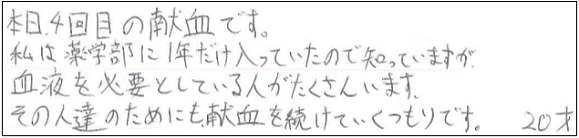 本日、4回目の献血です。
私は薬学部に1年だけ入っていたので知っていますが
血液を必要としている人がたくさんいます。
その人達のためにも、献血を続けていくつもりです。 20才